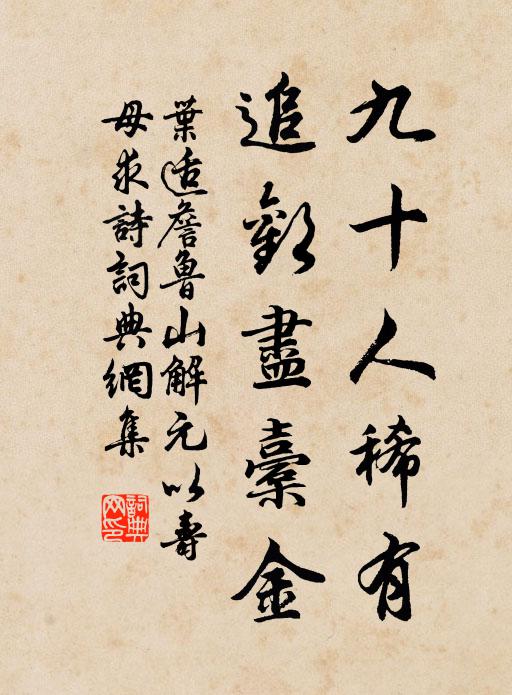 九十人稀有
追歡盡橐金
葉适詹魯山解元以壽
母求詩詞典網集
詞典网印